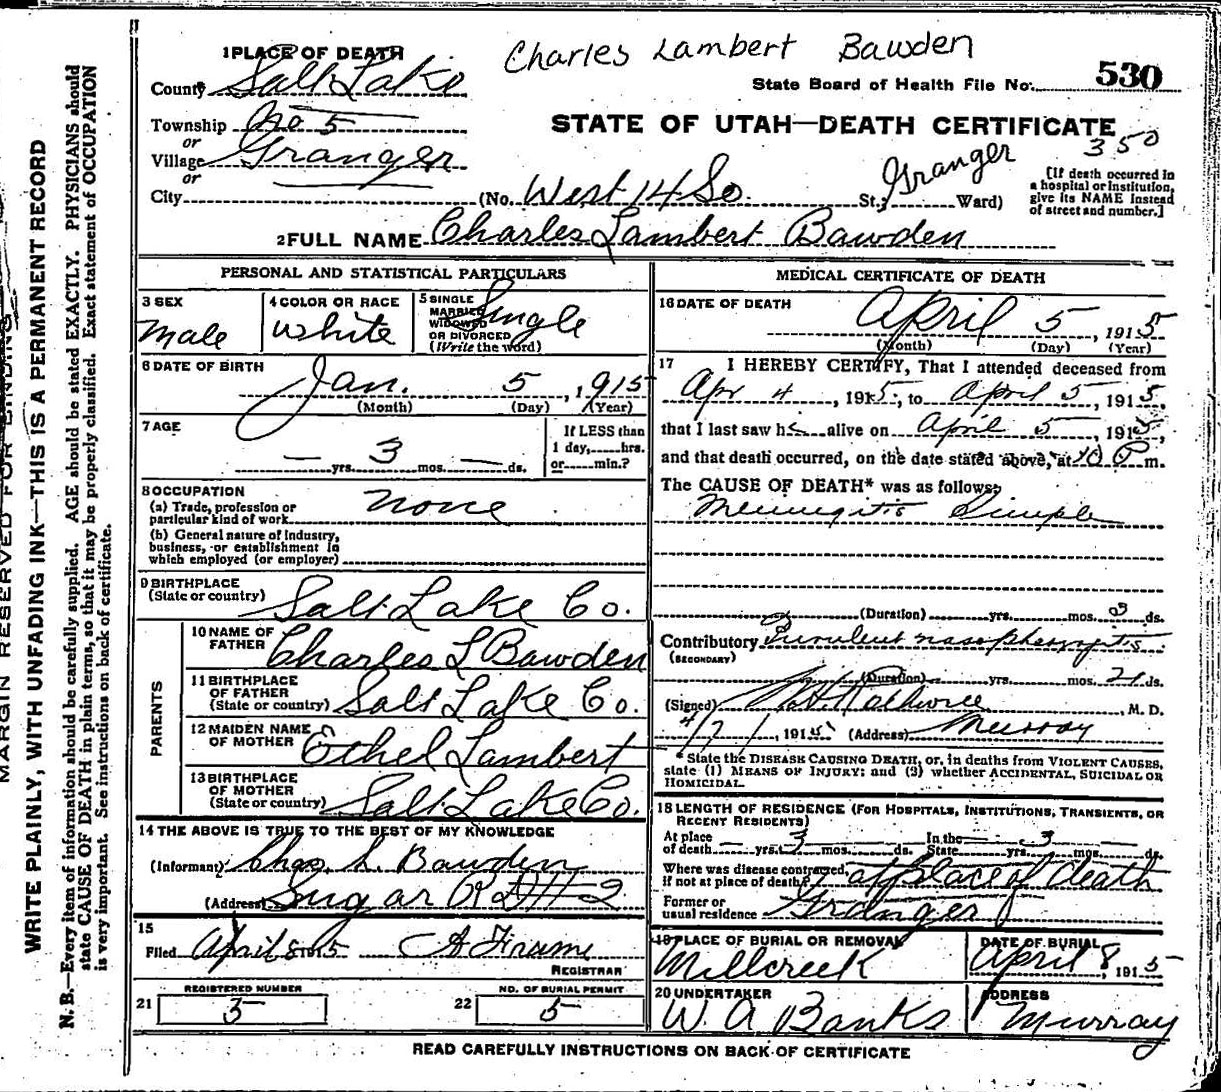 Charles Lambert Bawden
1 PLACE OF DEATH
County Salt Lake
State Board of Health File No. 530
Township No 5
or
STATE OF UTAH—DEATH CERTIFICATE
350
Village Granger
or
City (No. West 14 So. St.; Granger Ward)
[If death occurred in a hospital or institution, give its NAME instead of street and number.]
2 FULL NAME Charles Lambert Bawden
PERSONAL AND STATISTICAL PARTICULARS
3 SEX
Male
4 COLOR OR RACE
White
5 SINGLE
MARRIED
WIDOWED
OR DIVORCED
(Write the word)
Single
6 DATE OF BIRTH
Jan. 5, 1915
(Month) (Day) (Year)
7 AGE
— yrs. 3 mos. — ds.
If LESS than
1 day, hrs.
or min.?
8 OCCUPATION
(a) Trade, profession or
particular kind of work
none
(b) General nature of industry,
business, or establishment in
which employed (or employer)
9 BIRTHPLACE
(State or country)
Salt Lake Co.
PARENTS
10 NAME OF
FATHER
Charles L Bawden
11 BIRTHPLACE
OF FATHER
(State or country)
Salt Lake Co.
12 MAIDEN NAME
OF MOTHER
Ethel Lambert
13 BIRTHPLACE
OF MOTHER
(State or country)
Salt Lake Co.
14 THE ABOVE IS TRUE TO THE BEST OF MY KNOWLEDGE
(Informant) Chas. L. Bawden
(Address) Sugar
15
Filed April 8 1915
REGISTRAR
REGISTERED NUMBER
21 3
NO. OF BURIAL PERMIT
22 5
MEDICAL CERTIFICATE OF DEATH
16 DATE OF DEATH
April 5, 1915
(Month) (Day) (Year)
17 I HEREBY CERTIFY, That I attended deceased from
Apr 4, 1915, to April 5, 1915,
that I last saw he alive on April 5, 1915,
and that death occurred, on the date stated above, at 10 P m.
The CAUSE OF DEATH* was as follows:
Meningitis Simple
(Duration) yrs. mos. 3 ds.
Contributory Purulent nasopharyngitis
(SECONDARY)
(Duration) yrs. mos. 21 ds.
(Signed) M. D.
4/7/, 1915 (Address) Murray
* State the DISEASE CAUSING DEATH, or, in deaths from VIOLENT CAUSES,
state (1) MEANS OF INJURY; and (2) whether ACCIDENTAL, SUICIDAL OR
HOMICIDAL.
18 LENGTH OF RESIDENCE (FOR HOSPITALS, INSTITUTIONS, TRANSIENTS, OR
RECENT RESIDENTS)
At place In the
of death — yrs. 3 mos. — ds. State — yrs. 3 mos. — ds.
Where was disease contracted,
if not at place of death? at place of death
Former or
usual residence Granger
19 PLACE OF BURIAL OR REMOVAL
Millcreek
DATE OF BURIAL
April 8, 1915
20 UNDERTAKER
W. A Banks
ADDRESS
Murray
READ CAREFULLY INSTRUCTIONS ON BACK OF CERTIFICATE
MARGIN RESERVED FOR BINDING
WRITE PLAINLY, WITH UNFADING INK—THIS IS A PERMANENT RECORD
N. B.—Every item of information should be carefully supplied. AGE should be stated EXACTLY. PHYSICIANS should
state CAUSE OF DEATH in plain terms, so that it may be properly classified. Exact statement of OCCUPATION
is very important. See instructions on back of certificate.